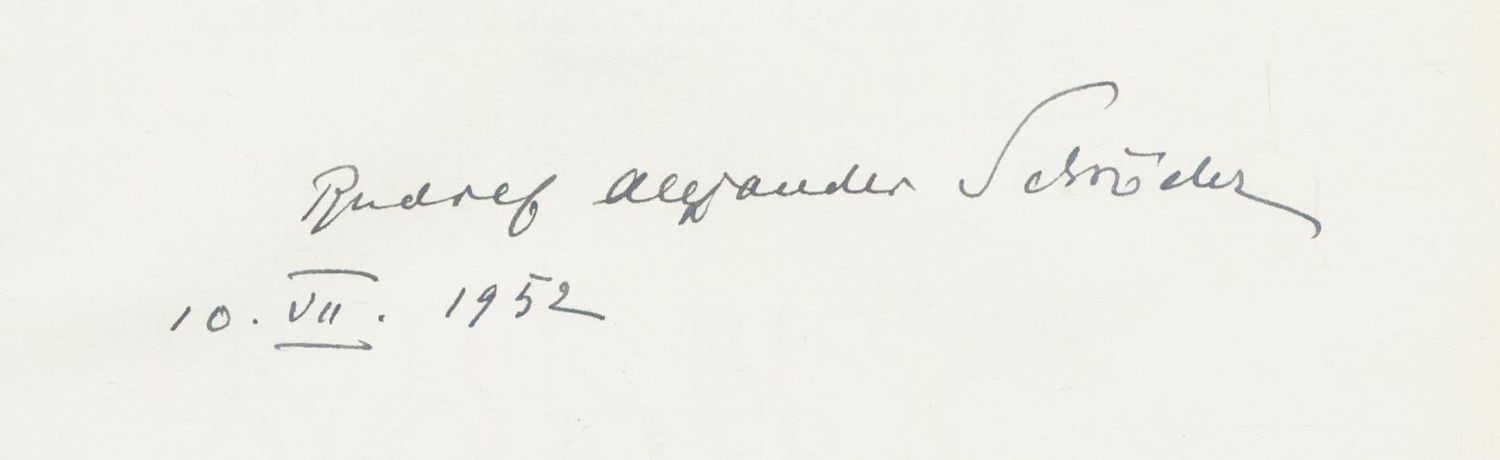 Rudolf Alexander Schröder
10. VII. 1952